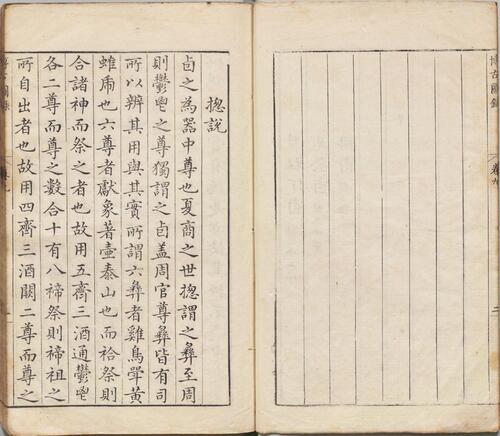 博古圖錄
卷九
二
揔説
卣之為器中尊也夏商之世揔謂之彝至周
則鬱鬯之尊獨謂之卣盖周官尊彝皆有司
所以辨其用與其實所謂六彝者雞鳥斝黄
蜼虎也六尊者獻象著壷泰山也而祫祭則
合諸神而祭之者也故用五齊三酒通鬱鬯
各二尊而尊之數合十有八禘祭則禘祖之
所自出者也故用四齊三酒闕二尊而尊之